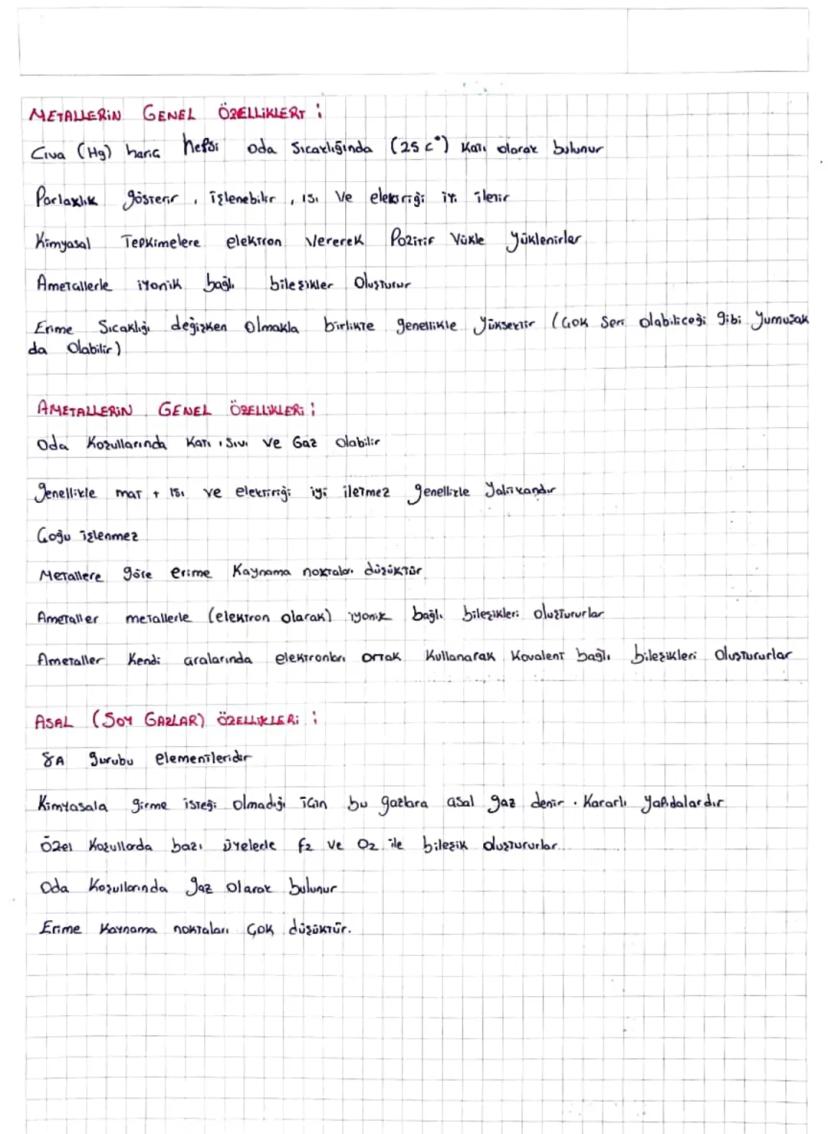 METALLERİN GENEL ÖZELLİKLERİ :
Cıva (Hg) hariç hepsi oda sıcaklığında (25 c°) katı olarak bulunur
Parlaklık gösterir , işlenebilir , ısı ve elektriği iyi iletir
Kimyasal Tepkimelere elektron vererek Pozitif Yükle yüklenirler
Ametallerle iyonik bağlı bileşikler oluşturur
Erime sıcaklığı değişken olmakla birlikte genellikle yüksektir (Çok sert olabiliceği gibi yumuşak
da olabilir)
AMETALLERİN GENEL ÖZELLİKLERİ :
Oda Koşullarında Katı , Sıvı ve Gaz olabilir
genellikle mat + ısı ve elektriği iyi iletmez genellikle yalıtkandır
Çoğu işlenmez
Metallere göre erime kaynama noktaları düşüktür
Ametaller metallerle (elektron olarak) iyonik bağlı bileşikleri oluştururlar
Ametaller kendi aralarında elektronları ortak kullanarak kovalent bağlı bileşikleri oluştururlar
ASAL (SOY GAZLAR) ÖZELLİKLERİ :
8A gurubu elementleridir
Kimyasala girme isteği olmadığı için bu gazlara asal gaz denir . Kararlı yapıdalardır
Özel Koşullarda bazı üyelerle F2 ve O2 ile bileşik oluştururlar
Oda Koşullarında gaz olarak bulunur
Erime Kaynama noktaları çok düşüktür.